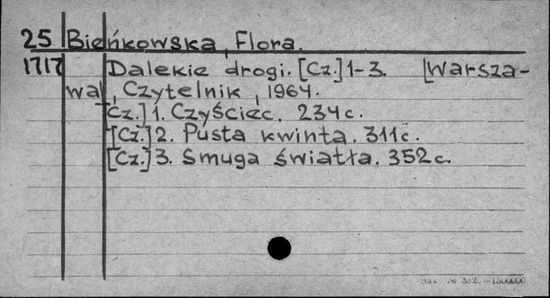 25 Bieńkowska, Flora.
1717 Dalekie drogi. [Cz.] 1-3. [Warsza-
wa], Czytelnik, 1964.
[Cz.] 1. Czyściec. 234 c.
[Cz.] 2. Pusta kwinta. 311 c.
[Cz.] 3. Smuga światła. 352 c.